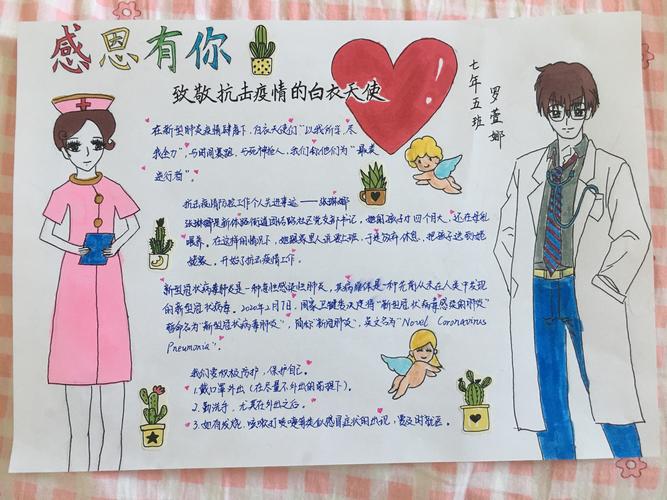 感恩有你
致敬抗击疫情的白衣天使
七年五班
罗萱娜
在新型肺炎疫情肆虐下,白衣天使们"以我所学,尽
我全力",与时间赛跑,与死神抢人,我们称他们为"最美
逆行者"。
抗击疫情防控工作个人先进事迹——张琳娜
张琳娜是新体路街道团结路社区党支部书记,她的孩子才四个月大,还在母乳
喂养。在这样的情况下,她跟家里人说要上班,于是放弃休息,把孩子送到姥
姥家。开始了抗击疫情工作。
新型冠状病毒肺炎是一种急性感染性肺炎,其病原体是一种先前从未在人类中发现
的新型冠状病毒。2020年2月7日,国家卫健委决定将"新型冠状病毒感染的肺炎"
暂命名为"新型冠状病毒肺炎",简称"新冠肺炎",英文名为"Novel Coronavirus
Pneumonia"。
我们要积极防护,保护自己。
1.戴口罩外出(在尽量不外出的前提下)。
2.勤洗手,尤其在外出之后。
3.如有发烧,咳嗽打喷嚏等类似感冒症状的出现,要及时就医。